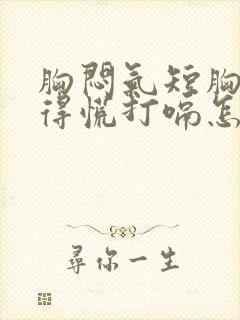 胸悶氣短胸
得慌打嗝怎
尋你一生